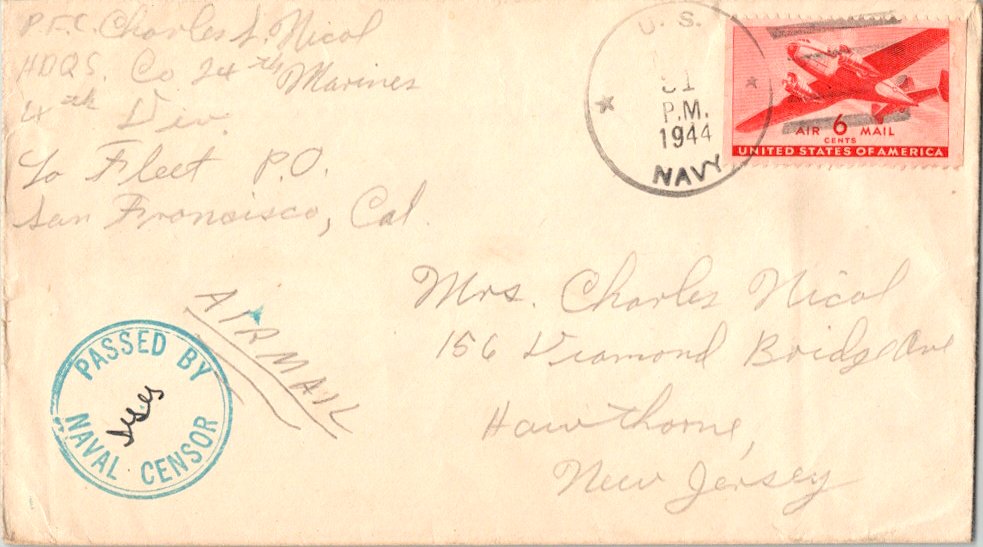 P.F.C. Charles S. Nicol
HDQS. Co 24th Marines
4th Div.
℅ Fleet P.O.
San Francisco, Cal.
U. S.
31
P.M.
1944
NAVY
AIR 6 MAIL
CENTS
UNITED STATES OF AMERICA
Mrs. Charles Nicol
156 Diamond Bridge Ave
Hawthorne,
New Jersey
AIRMAIL
PASSED BY
NAVAL CENSOR